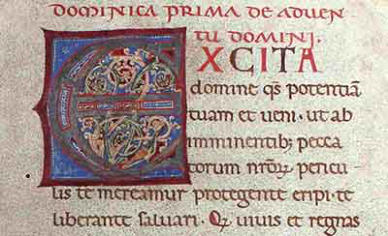 DOMINICA PRIMA DE ADVEN
TU DOMINI.
EXCITA
domine qs potentiā
tuam et ueni · ut ab
imminentib; pecca
torum nr̄oꝝ pericu
lis te mereamur protegente eripi · te
liberante saluari. Qui uiuis et regnas